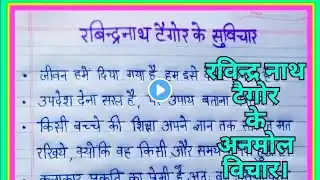 रबिन्द्रनाथ टैगोर के सुविचार
• जीवन हमें दिया गया है, हम इसे
• उपदेश देना सरल है,
उपाय बताना
• किसी बच्चे की शिक्षा अपने ज्ञान तक
मत
रखिये, क्योंकि वह किसी और समय
प्रकृति का प्रेमी है अतः
रविन्द्र नाथ
टैगोर
के
अनमोल
विचार।